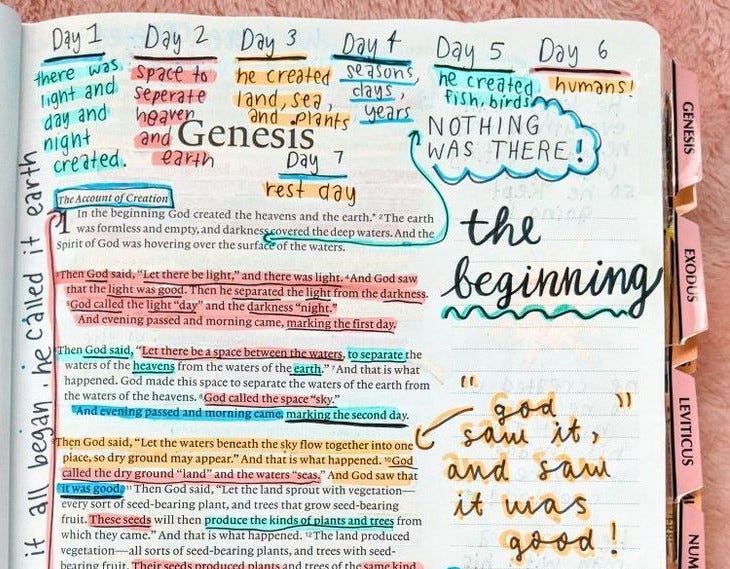 Day 1
there was
light and
day and
night
created.
Day 2
space to
seperate
heaven
and
earth
Day 3
he created
land, sea,
and plants
Day 4
seasons,
days,
years
Day 5
he created
fish, birds
Day 6
humans!
Genesis
Day 7
rest day
NOTHING
WAS THERE!
it all began. he called it earth
The Account of Creation
1 In the beginning God created the heavens and the earth.* ²The earth
was formless and empty, and darkness covered the deep waters. And the
Spirit of God was hovering over the surface of the waters.
³Then God said, “Let there be light,” and there was light. ⁴And God saw
that the light was good. Then he separated the light from the darkness.
⁵God called the light “day” and the darkness “night.”
And evening passed and morning came, marking the first day.
⁶Then God said, “Let there be a space between the waters, to separate the
waters of the heavens from the waters of the earth.” ⁷And that is what
happened. God made this space to separate the waters of the earth from
the waters of the heavens. ⁸God called the space “sky.”
And evening passed and morning came, marking the second day.
⁹Then God said, “Let the waters beneath the sky flow together into one
place, so dry ground may appear.” And that is what happened. ¹⁰God
called the dry ground “land” and the waters “seas.” And God saw that
it was good. ¹¹Then God said, “Let the land sprout with vegetation—
every sort of seed-bearing plant, and trees that grow seed-bearing
fruit. These seeds will then produce the kinds of plants and trees from
which they came.” And that is what happened. ¹²The land produced
vegetation—all sorts of seed-bearing plants, and trees with seed-
bearing fruit. Their seeds produced plants and trees of the same kind
the
beginning
"god
saw it,
and saw
it was
good!"
GENESIS
EXODUS
LEVITICUS
NUM